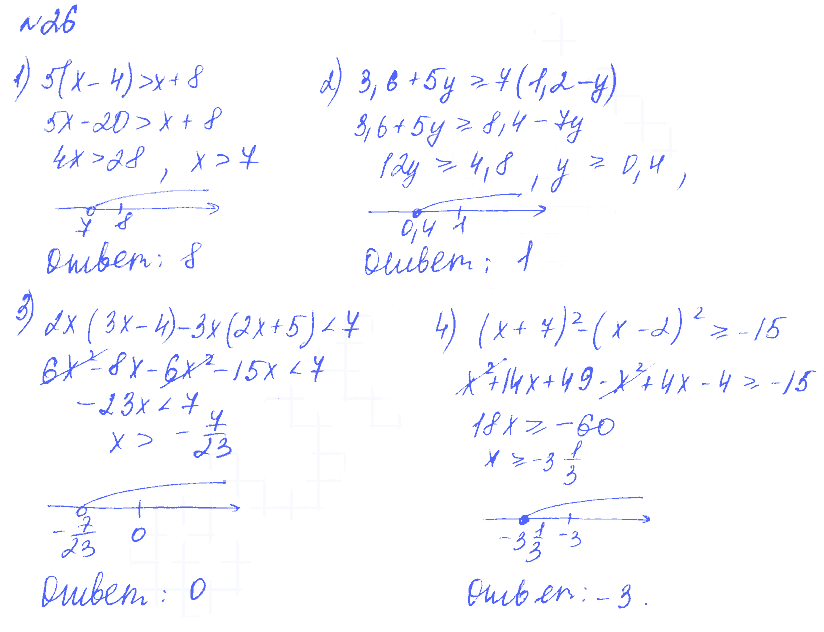 №26
1) 5(x-4)>x+8
5x-20>x+8
4x>28, x>7
7 8
Ответ: 8
2) 3,6+5y≥7(1,2-y)
3,6+5y≥8,4-7y
12y≥4,8, y≥0,4,
0,4 1
Ответ: 1
3) 2x(3x-4)-3x(2x+5)<7
6x²-8x-6x²-15x<7
-23x<7
x>-7/23
-7/23 0
Ответ: 0
4) (x+7)²-(x-2)²≥-15
x²+14x+49-x²+4x-4≥-15
18x≥-60
x≥-3 1/3
-3 1/3 -3
Ответ: -3.